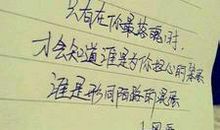 只有在你最落魄时,
才会知道谁是为你担心的笨蛋
谁是形同陌路的混蛋